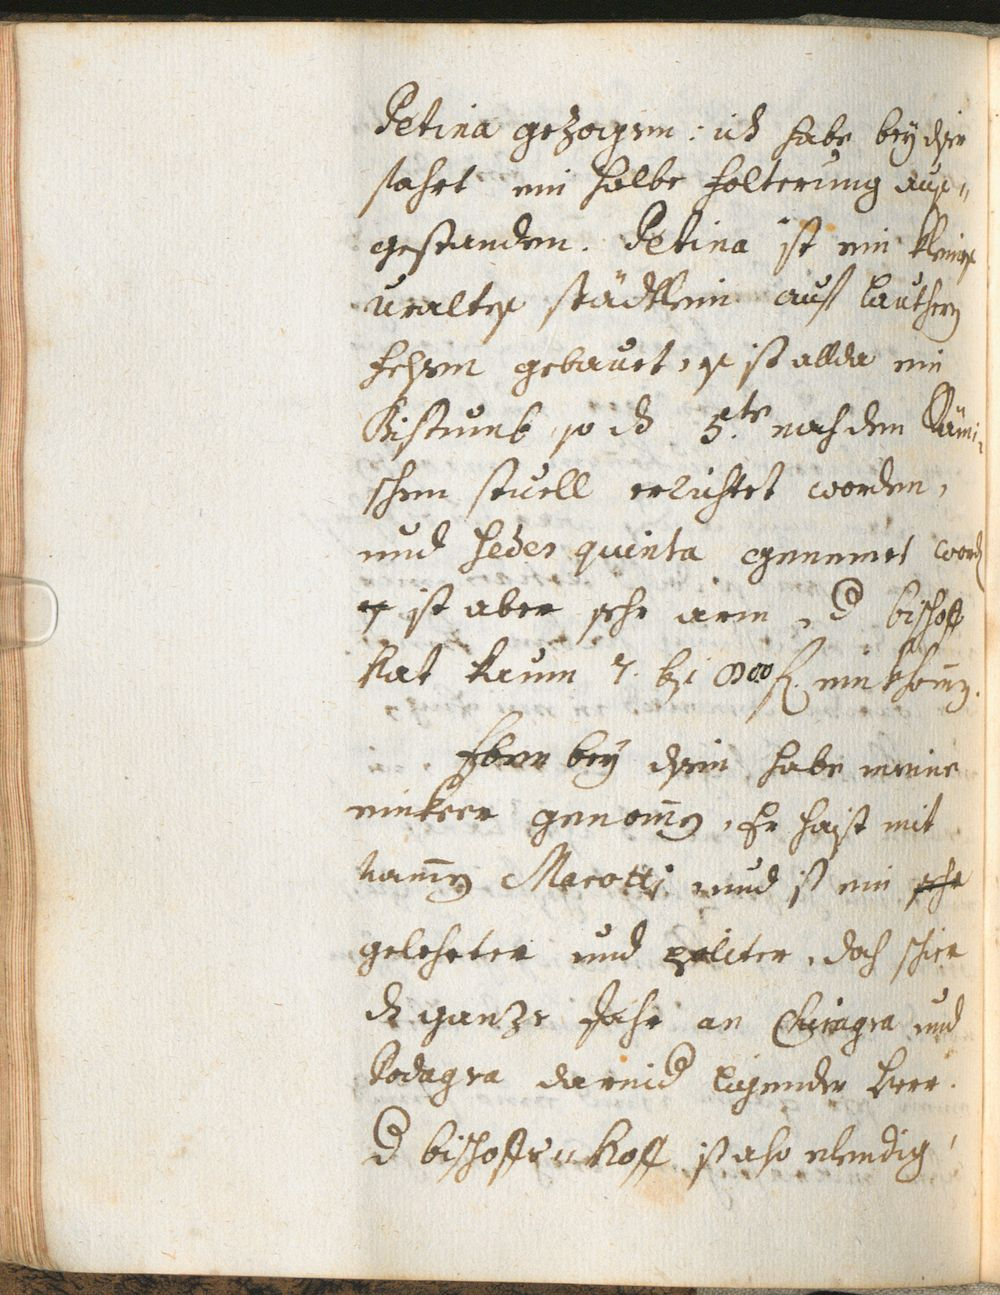 Petina gezogen: ich habe bey dser
fahrt ein halbe folterung aus„
gestanden. Petina ist ein kleines
uraltes städtlein auss lauthern
felsen gebauet, es ist allda ein
Bistumb, so dz 5.te nach dem Römi„
schen stuell erlichtet worden,
und sedes quinta genennet word
es ist aber sehr arm, d bischoff
hat kaum 7. bis 800 f. einkhomen.
Eben bey dsem habe meine
einkeer genomen, Er haist mit
namen Marotti und ist ein sehr
gelehrter und politer, doch schier
dz ganze Jahr an Chiragra und
Podagra darnid ligender herr.
d bischoffs„hoff ist also elendig,